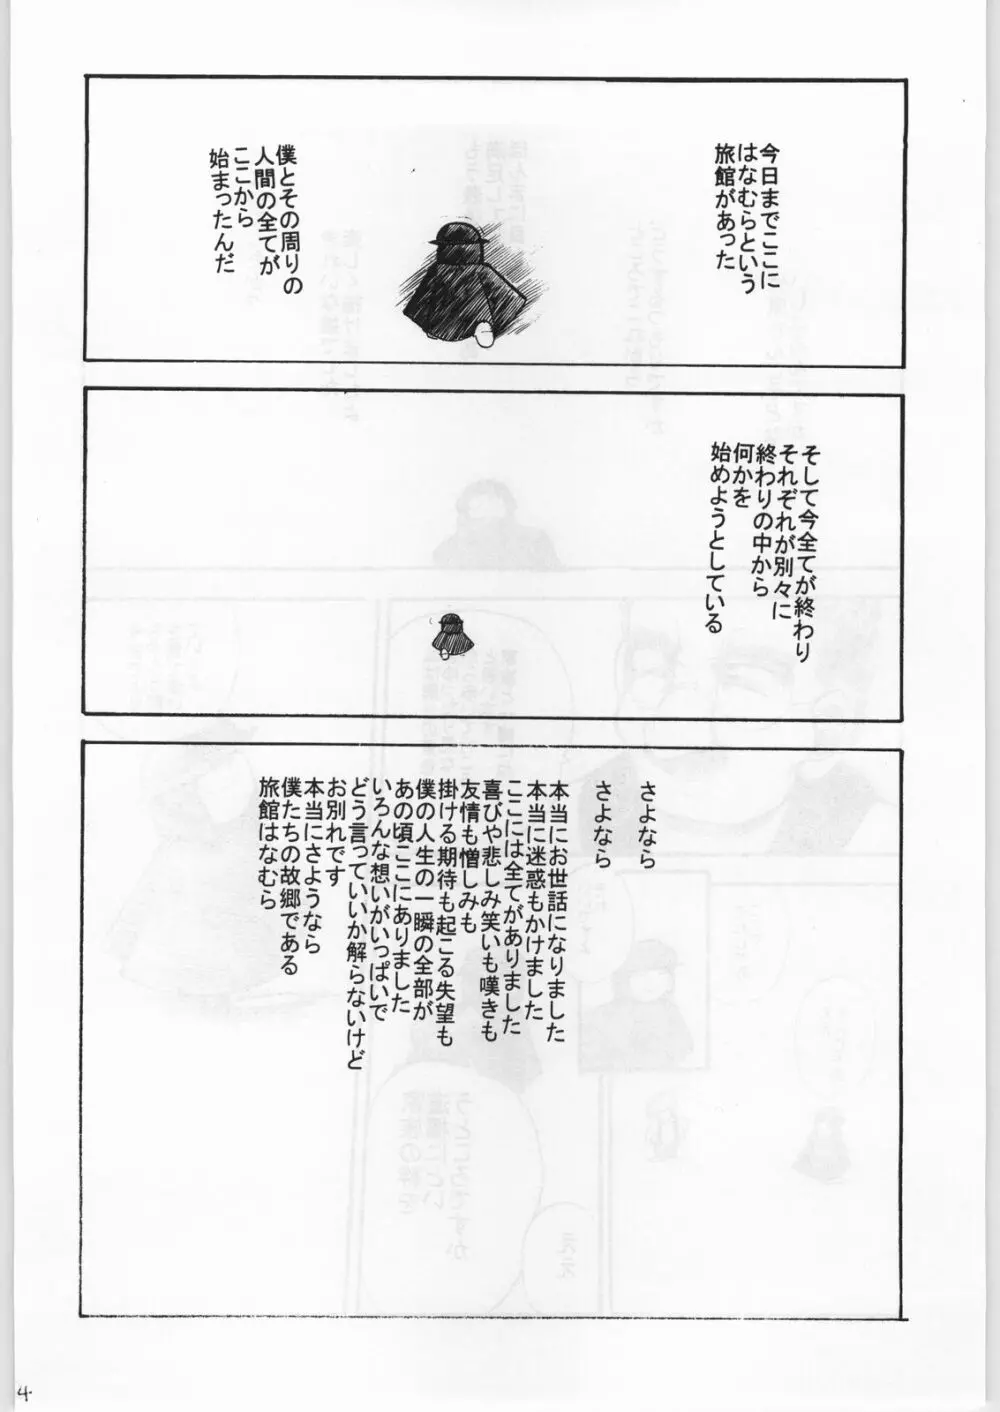 今日までここに
はなむらという
旅館があった
僕とその周りの
人間の全てが
ここから
始まったんだ
そして今全てが終わり
それぞれが別々に
終わりの中から
何かを
始めようとしている
さよなら
さよなら
本当にお世話になりました
本当に迷惑もかけました
ここには全てがありました
喜びや悲しみ笑いも嘆きも
友情も憎しみも
掛ける期待も起こる失望も
僕の人生の一瞬の全部が
あの頃ここにありました
いろんな想いがいっぱいで
どう言っていいか解らないけど
お別れです
本当にさようなら
僕たちの故郷である
旅館はなむら
4